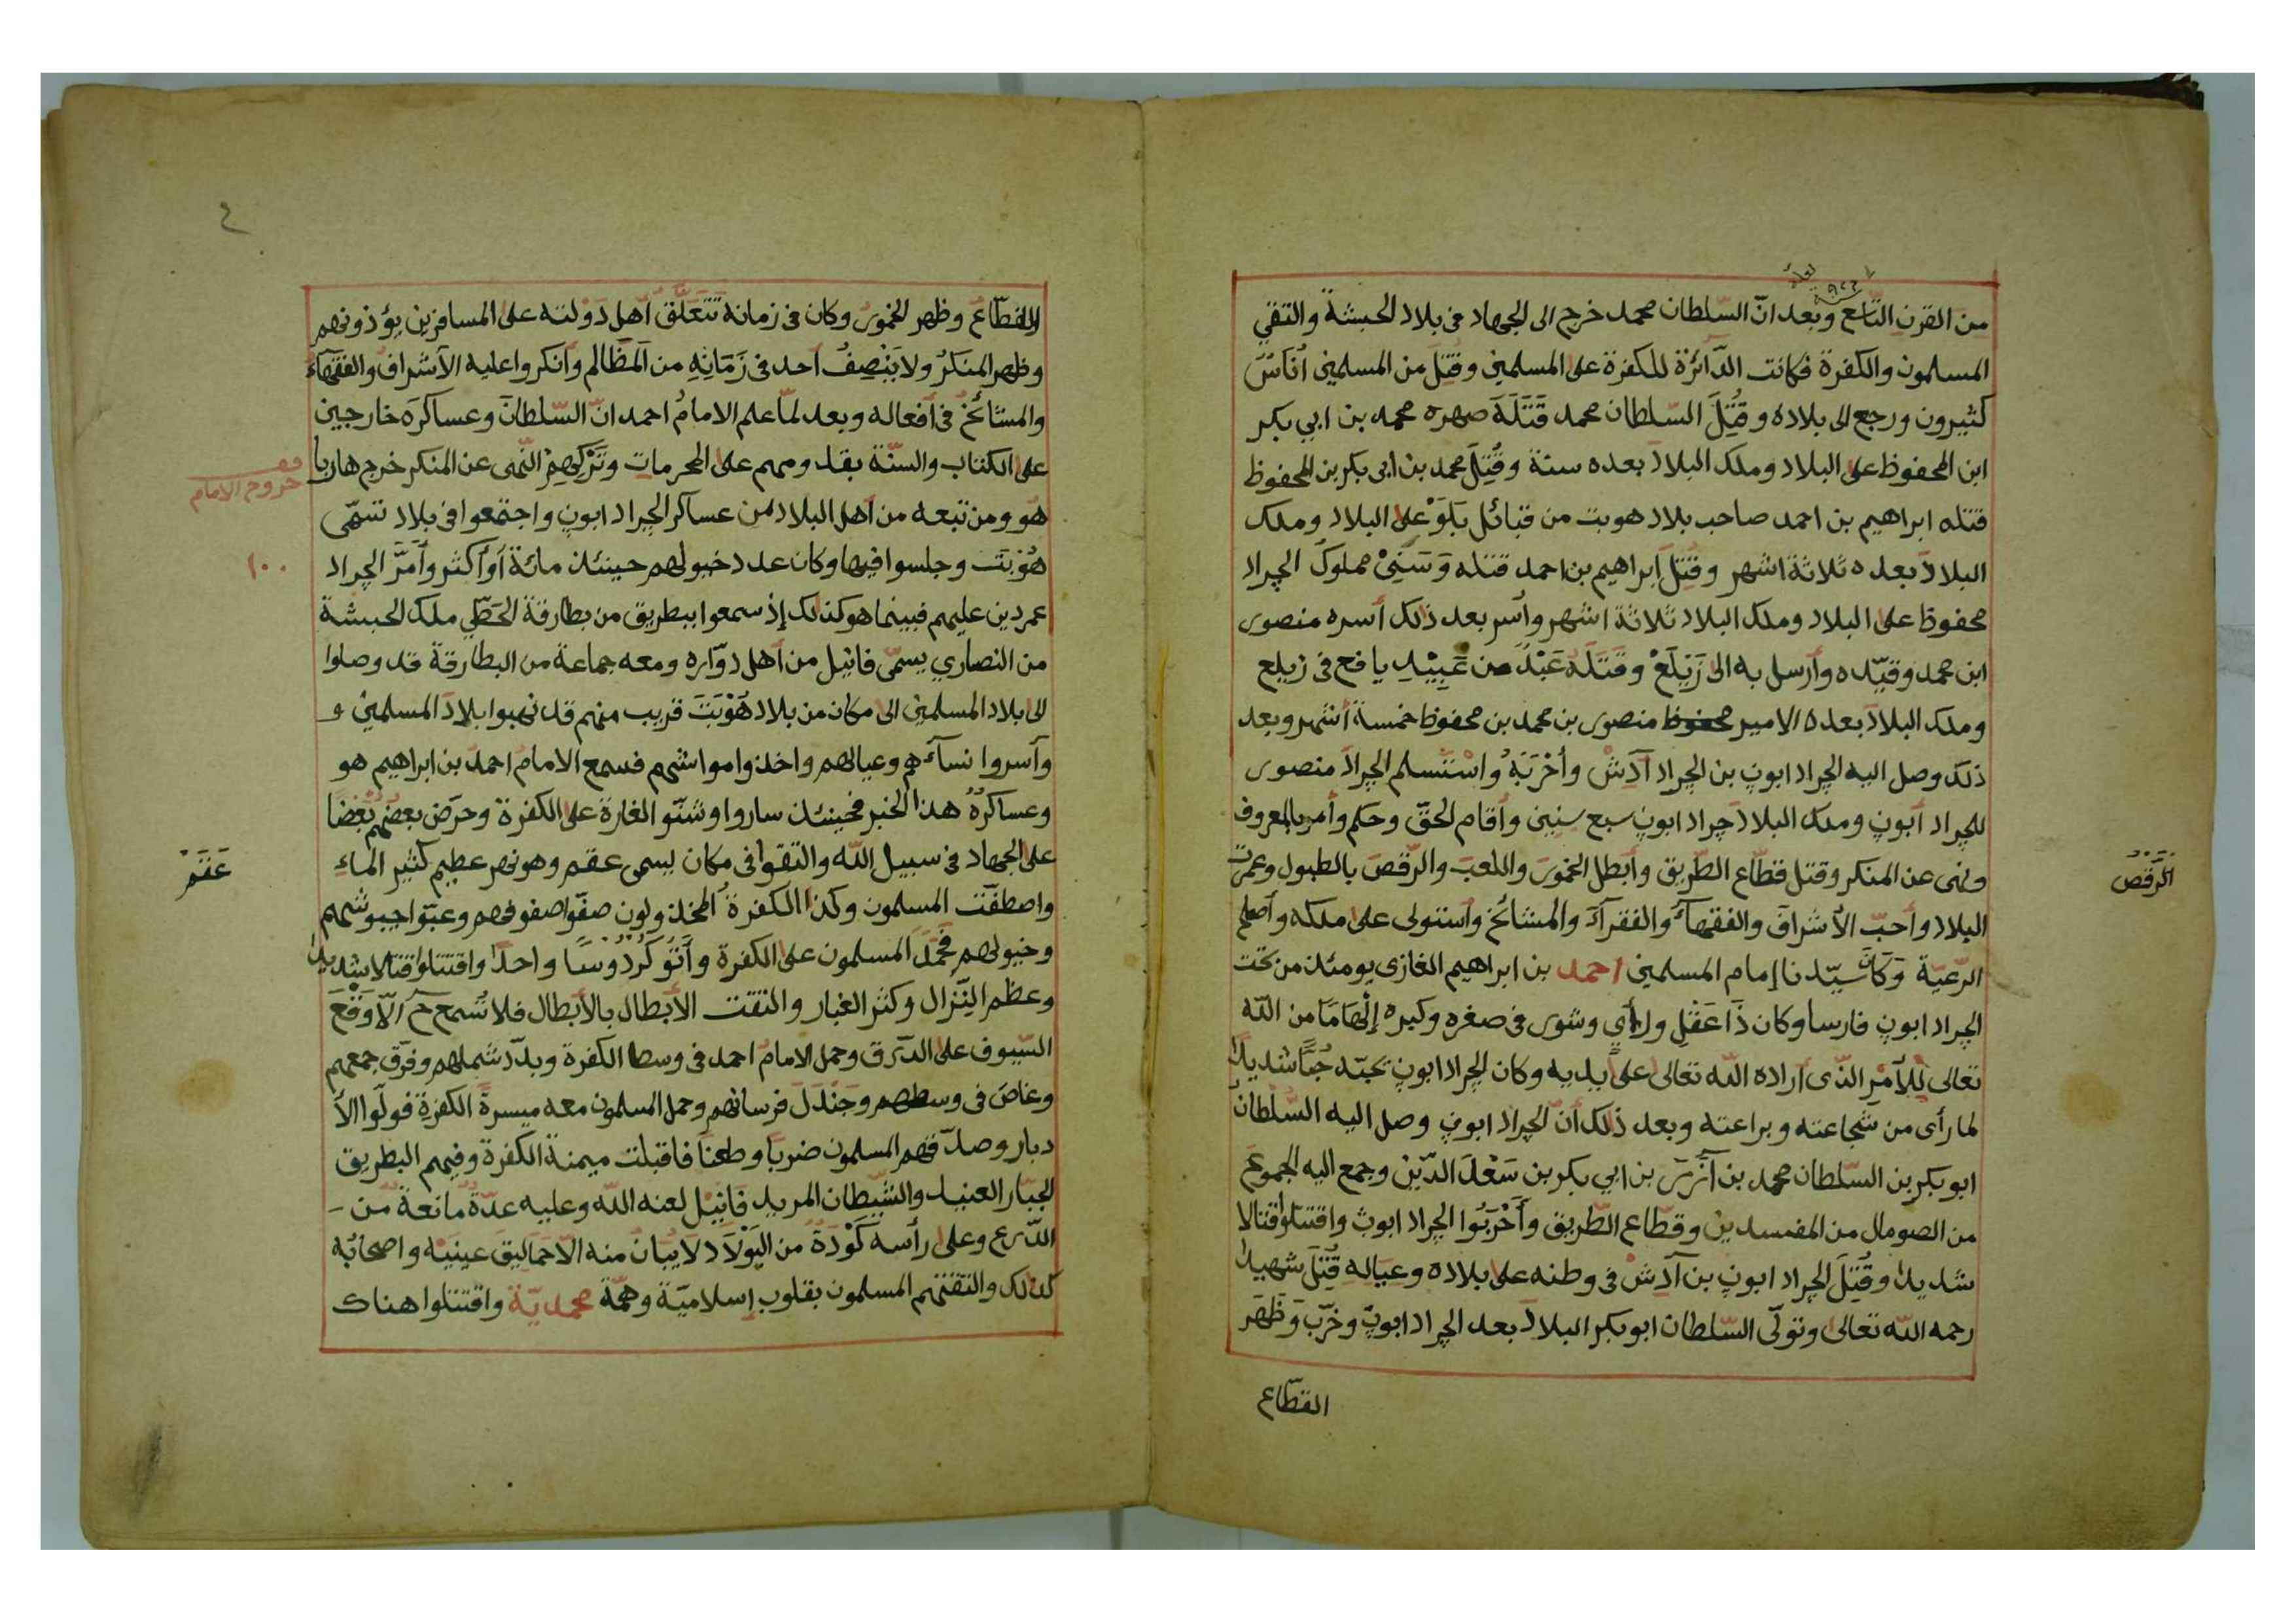 من القرن التاسع وبعد انّ السّلطان محمد خرج الى الجهاد فى بلاد الحبشة والتقي
المسلمون والكفرة فكانت الدّائرة للكفرة على المسلمين وقُتِلَ من المسلمين أناسٌ
كثيرون ورجع الى بلاده وقُتِلَ السّلطان محمد قَتَلَهُ صهره محمد بن ابي بكر
ابن المحفوظ على البلاد وملك البلاد بعده سنة وقُتِلَ محمد بن ابى بكر بن المحفوظ
قتله ابراهيم بن احمد صاحب بلاد هوبت من قبائل بَلَوْ على البلاد وملك
البلادَ بعده ثلاثة اشهر وقُتِلَ ابراهيم بن احمد قتله وَسَنِيْ مملوك الجراد
محفوظ على البلاد وملك البلاد ثلاثة اشهر وأسر بعد ذلك أسره منصور
ابن محمد وقيّده وأرسل به الى زَيْلَعْ وقَتَلَهُ عَبْدٌ من عَبِيْدِ يافع فى زيلع
وملك البلادَ بعده الامير محفوظ منصور بن محمد بن محفوظ خمسة أشهر وبعد
ذلك وصل اليه الجراد ابون بن الجراد آدَشْ وأخْرَبَهُ واسْتَسلم الجرادَ منصور
للجراد أبون وملك البلادَ جراد ابون سبع سنين وأقام الحقّ وحكم وأمر بالمعروف
ونهى عن المنكر وقتل قطّاع الطّريق وأبطل الخمورَ واللعبَ والرّقصَ بالطبول وعمرت
الرَّقْصَ
البلاد وأحبّ الأشرافَ والفقهآءَ والفقرآءَ والمشائخَ واستولى على ملكه وأصلح
الرّعيّة وَكَانَ سيّدنا إمام المسلمين احمد بن ابراهيم الغازى يومئذ من تحت
الجراد ابون فارسا وكان ذَا عَقْلٍ ورأي وشور فى صغره وكبره إلْهَامًا من اللّه
تعالى للأمْرِ الذّى أراده اللّه تعالى على يديه وكان الجراد ابون يحبّه حُبًّا شديدًا
لما رأى من شجاعته وبراعته وبعد ذلك أنّ الجراد ابون وصل اليه السّلطانُ
ابو بكر بن السّلطان محمد بن آزَرَ بن ابي بكر بن سَعْدَ الدّين وجمع اليه الجموعَ
من الصومال من المفسدين وقطّاع الطّريق وأخْرَبُوا الجراد ابون واقتتلوا قتالا
شديدا وقُتِلَ الجراد ابون بن آدَشْ فى وطنه على بلاده وعياله قُتِلَ شهيدا
رحمه اللّه تعالى وتولّى السّلطان ابو بكر البلادَ بعد الجراد ابون وخرّب وَظَهَر
القطّاع
٤
القطّاع وظهر الخمور وكان فى زمانه تَتَعَلَّق أهل دَوْلته على المسافرين يؤذونهم
وظهر المنكرُ ولا يَنْصِفُ أحد فى زَمَانِهِ من المظالم وأنكروا عليه الأشراف والفقهآءُ
والمشائخُ فى أفعاله وبعد لمّا علم الامامُ احمد انّ السّلطانَ وعساكرَه خارجين
على الكتاب والسنّة بقدومهم على المحرمات وتَرْكِهِمْ النّهى عن المنكر خرج هاربا
خروج الامام
هو ومن تبعه من أهل البلاد من عساكر الجراد ابون واجتمعوا فى بلاد تسمّى
هُوْبَتَ وجلسوا فيها وكان عدد خيولهم حينئذ مائة أو أكثر وأمَّرَ الجراد
١٠٠
عمردين عليهم فبينما هو كذلك إذ سمعوا ببطريق من بطارقة الحَطِّي ملك الحبشة
من النصاري يسمّى فانيل من أهل دوّاره ومعه جماعة من البطارقة قد وصلوا
الى بلاد المسلمين الى مكان من بلاد هُوْبَتَ قريب منهم قد نهبوا بلادَ المسلمين و
وآسروا نسآءهم وعيالهم واخذوا مواشيهم فسمع الامام احمدُ بن ابراهيم هو
وعساكرُهُ هذا الخبر فحينئذ ساروا وشنّو الغارة على الكفرة وحرّض بعضهم بَعْضًا
على الجهاد فى سبيل اللّه والتقوا فى مكان يسمى عقم وهو نهر عظيم كثير الماء
عَقَمْ
واصطفّت المسلمون وكذا الكفرةُ المخذولون صفّوا صفوفهم وعبّوا جيوشهم
وخيولهم فحَمَلَ المسلمون على الكفرة وأتَو كُرْدُوسًا واحدًا واقتتلوا قتالا شديدا
وعظم النّزال وكثر الغبار والتقت الأبطال بالأبطال فلا تُسمع الّا وَقْعَ
السّيوف على الدّرق وحمل الامامُ احمد فى وسط الكفرة وبدّد شملهم وفرّق جمعهم
وغاصَ فى وسطهم وجَنْدَلَ فرسانهم وحمل المسلمون معه ميسرةَ الكفرة فولّوا الأ
دبار وصدّقهم المسلمون ضربًا وطعنًا فاقبلت ميمنة الكفرة وفيهم البطريق
الجبّار العنيد والشّيطان المريد فَانِيْل لعنه اللّه وعليه عدّةٌ مَانعةٌ من -
الدّرع وعلى رأسه خَوْذَةٌ من البَوْلَاد لَا يُبان منه الّا حَمَالِيق عينيْه واصحابُه
كذلك والتقتهم المسلمون بقلوب إسلاميّة وهمّة محمديّة واقتتلوا هناك